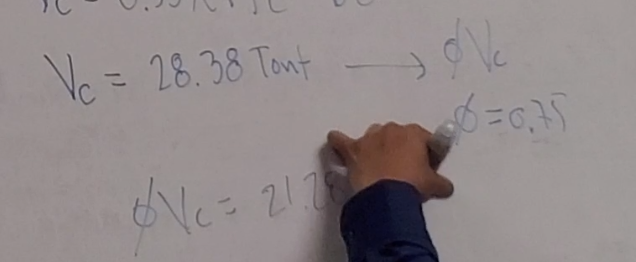 Vc = 28.38 Tonf → ϕVc
ϕ = 0.75
ϕVc = 21.28